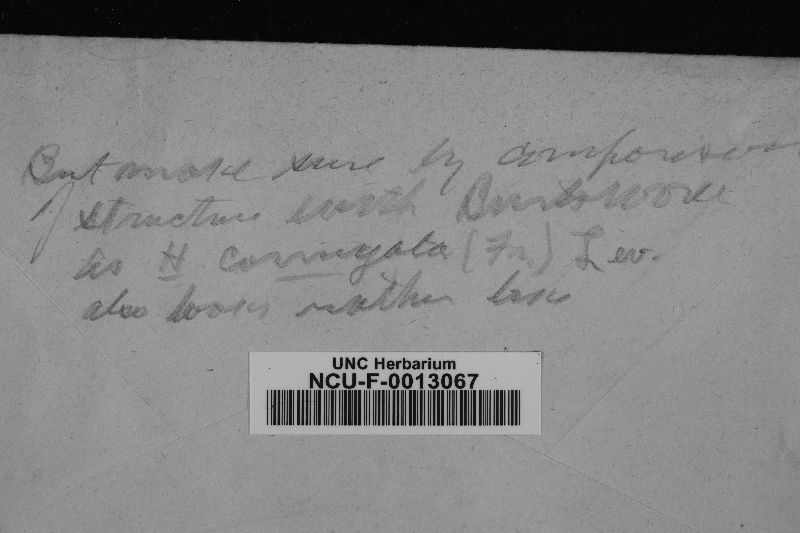 But make sure by comparison
structure with Burt's work
as H corrugata (Fr.) Lev.
also looks rather like
UNC Herbarium
NCU-F-0013067